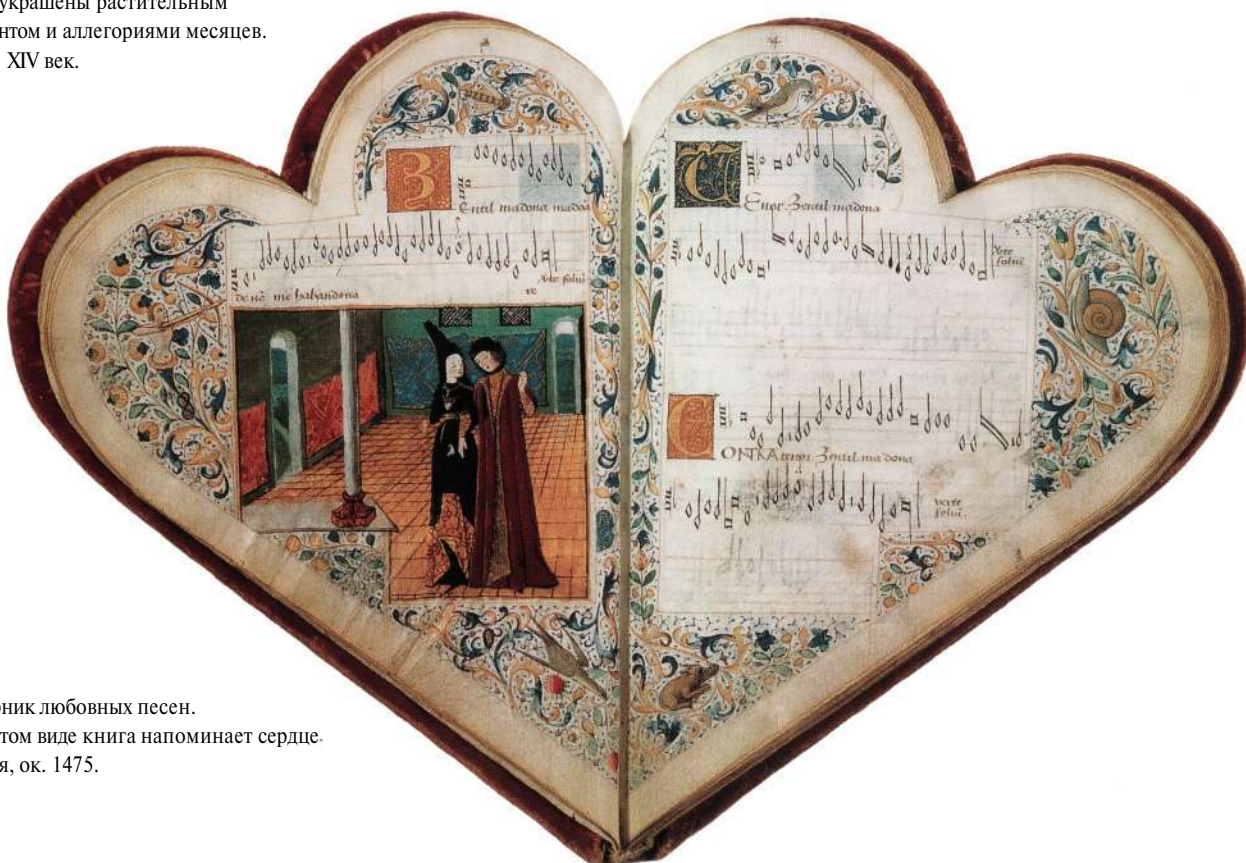 украшены растительным
нтом и аллегориями месяцев.
XIV век.
Entil madona mado
de nō me habandona
Verte foliū
Enor Zentil madona
Verte
foliū
ONTRA tenor Zentil madona
verte
foliū.
ник любовных песен.
том виде книга напоминает сердце.
я, ок. 1475.